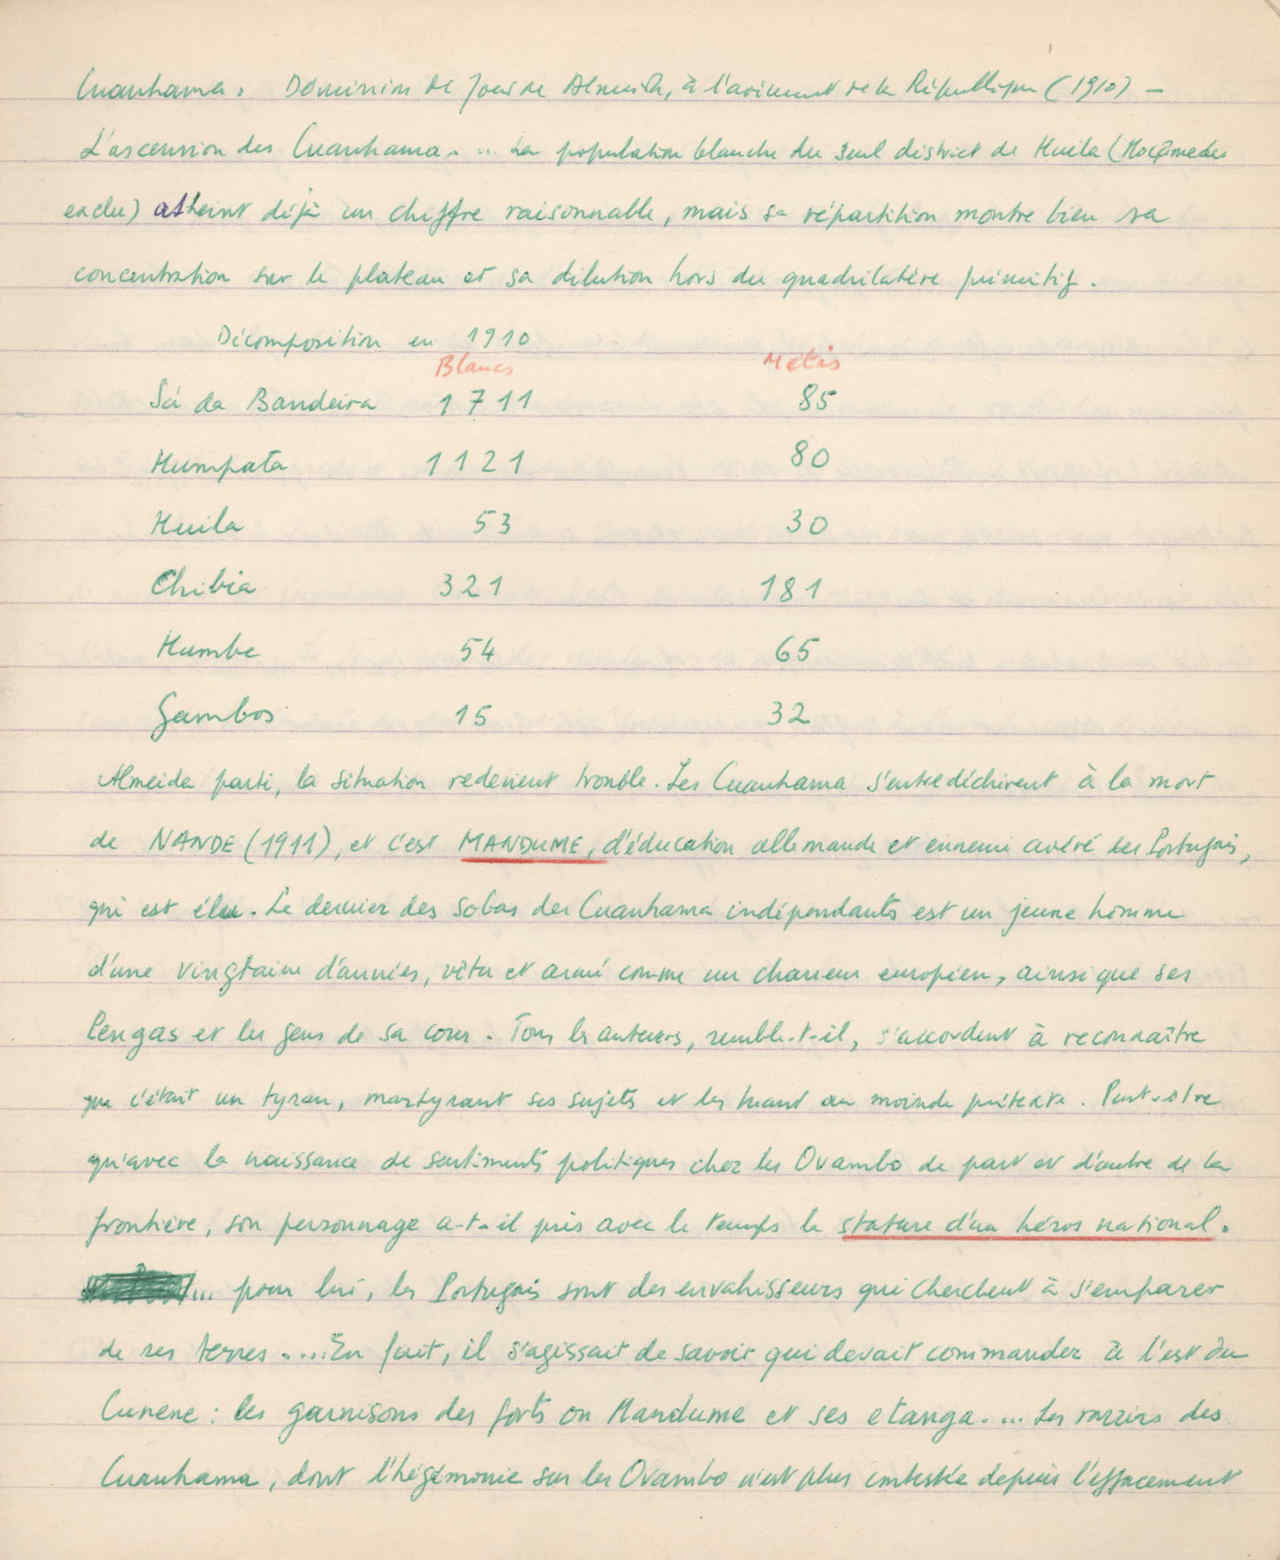 Cuanhama. Démission de João de Almeida, à l'avènement de la République (1910) –
L'ascension des Cuanhama. ... La population blanche du seul district de Huila (Moçamedes
exclu) atteint déjà un chiffre raisonnable, mais sa répartition montre bien sa
concentration sur le plateau et sa dilution hors du quadrilatère primitif.
Décomposition en 1910
Blancs Métis
Sá da Bandeira 1711 85
Humpata 1121 80
Huila 53 30
Chibia 321 181
Humbe 54 65
Gambos 15 32
Almeida parti, la situation redevient trouble. Les Cuanhama s'entredéchirent à la mort
de NANDE (1911), et c'est MANDUME, d'éducation allemande et ennemi avéré des Portugais,
qui est élu. Le dernier des sobas des Cuanhama indépendants est un jeune homme
d'une vingtaine d'années, vêtu et armé comme un chasseur européen, ainsi que ses
lengas et les gens de sa cour. Tous les auteurs, semble-t-il, s'accordent à reconnaître
que c'était un tyran, martyrant ses sujets et les tuant au moindre prétexte. Peut-être
qu'avec la naissance de sentiments politiques chez les Ovambo de part et d'autre de la
frontière, son personnage a-t-il pris avec le temps la stature d'un héros national.
... pour lui, les Portugais sont des envahisseurs qui cherchent à s'emparer
de ses terres. ... En fait, il s'agissait de savoir qui devait commander à l'est du
Cunene : les garnisons des forts ou Mandume et ses etanga. ... Les razzias des
Cuanhama, dont l'hégémonie sur les Ovambo n'est plus contestée depuis l'effacement